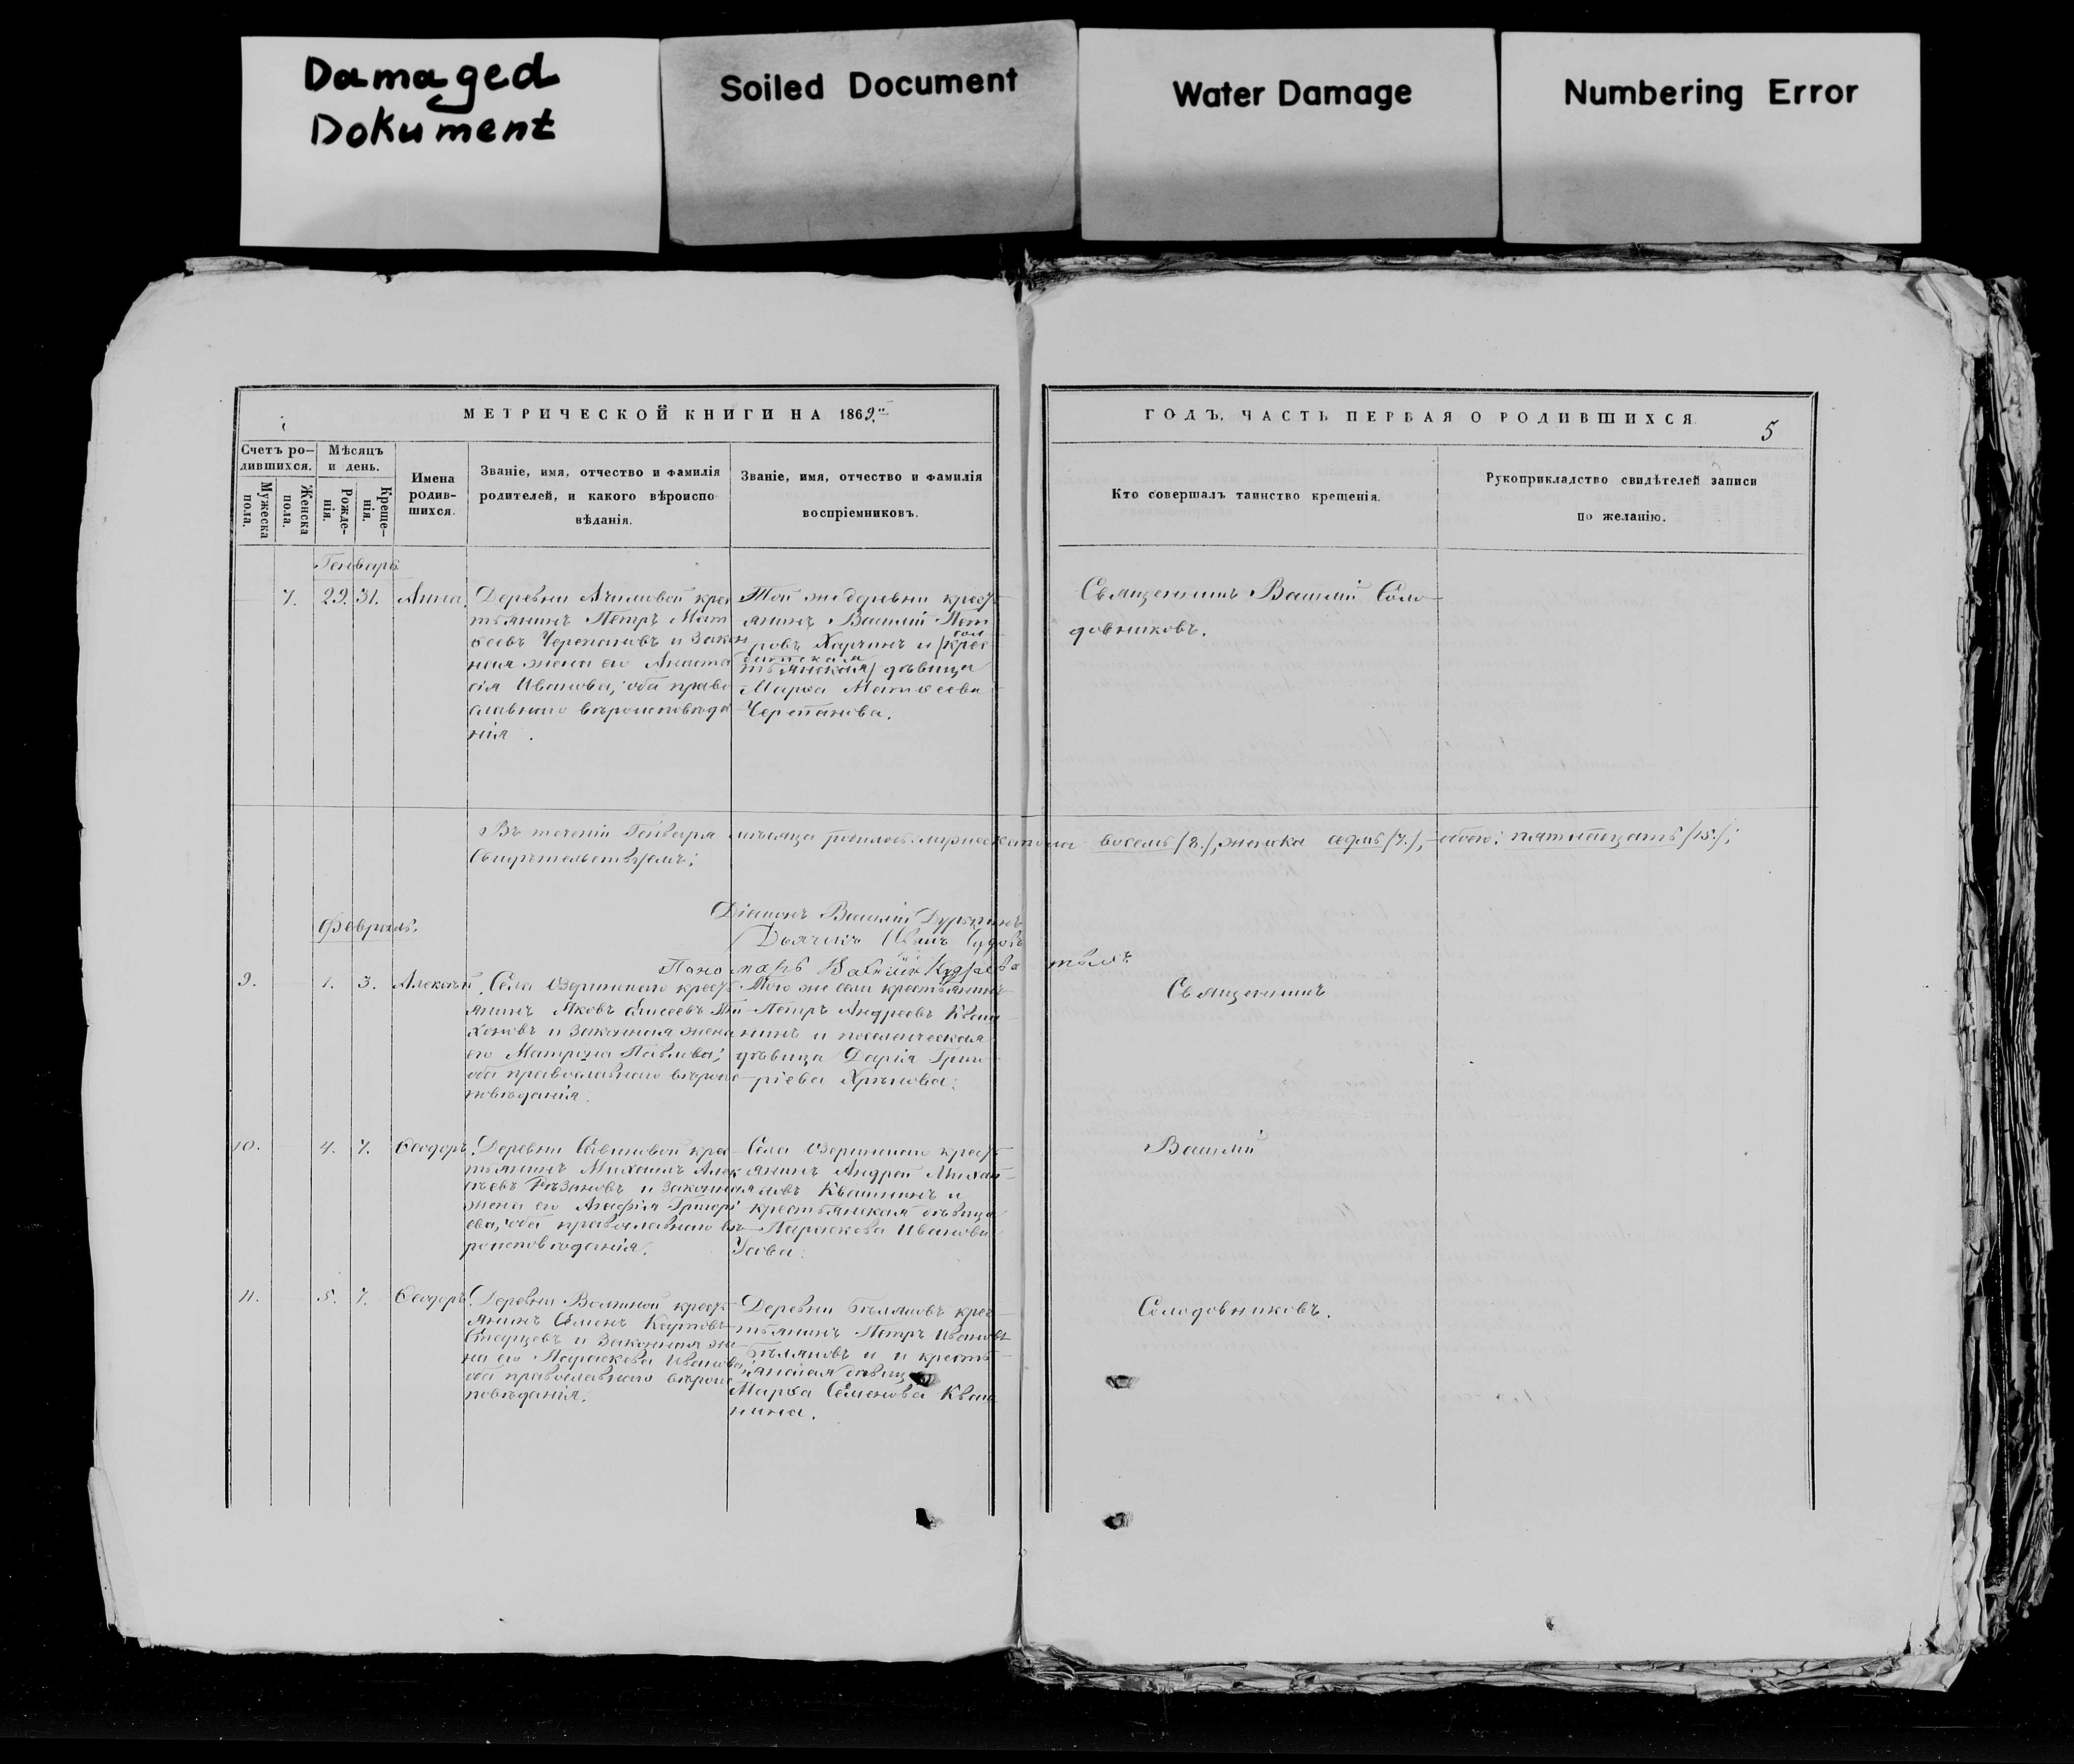 Damaged
Dokument
Soiled Document
Water Damage
Numbering Error
МЕТРИЧЕСКОЙ КНИГИ НА 1869.
Счетъ ро-
дившихся.
Мужеска
пола.
Женска
пола.
Мѣсяцъ
и день.
Рожде-
нія.
Креще-
нія.
Имена
родив-
шихся.
Званіе, имя, отчество и фамилія
родителей, и какого вѣроиспо
вѣданія.
Званіе, имя, отчество и фамилія
воспріемниковъ.
ГОДЪ, ЧАСТЬ ПЕРВАЯ О РОДИВШИХСЯ
5
Кто совершалъ таинство крещенія.
Рукоприкладство свидѣтелей записи
по желанію.
Генварь
7. 29. 31. Анна.
Деревни крес
тьянинъ Петръ Мат
ѳеевъ Черепановъ и закон
ная жена его Анаста
сія Иванова, оба право
славнаго вѣроисповѣда
нія.
Той же деревни крест
янинъ Василій Пет
ровъ Харчинъ и /крес
тьянская/ дѣвица
Марѳа Матѳеева
Черепанова.
Священникъ Василій Соло
довниковъ.
Въ теченіи Генваря мѣсяца родилось: мужеска пола восемь /8./, женска седмь /7./, обоего: пятнатцать /15./;
Свидѣтельствуемъ;
Діаконъ Василій
Дьячикъ Иванъ
Пономарь Василій
Февраль.
9. 1. 3. Алексѣй.
Села Озернинаго крест
янинъ Яковъ Елисеевъ Ти
хоновъ и законная жена
его Матрона Павлова;
оба православнаго вѣроис
повѣданія.
Того же села крестьянинъ
Петръ Андреевъ Кваш
нинъ и поселенческая
дѣвица Дарія Григо
ріева Хрѣнова.
Священникъ
10. 4. 7. Ѳеодоръ.
Деревни Савиновой крес
тьянинъ Михаилъ Алек
сѣевъ Рѣзановъ и законная
жена его Агафія Григорі
ева, оба православнаго вѣ
роисповѣданія.
Села Озернинаго крест
янинъ Андрей Михай
ловъ Квашнинъ и
крестьянская дѣвица
Параскева Иванова
Усова.
Василій
11. 5. 7. Ѳеодоръ.
Деревни крест
янинъ Семенъ Карповъ
Старцевъ и законная же
на его Параскева Иванова
оба православнаго вѣроис
повѣданія.
Деревни Бѣляновъ крес
тьянинъ Петръ Ивановъ
Бѣляновъ и и кресть
янская дѣвица
Марѳа Семенова Кваш
нина.
Солодовниковъ.